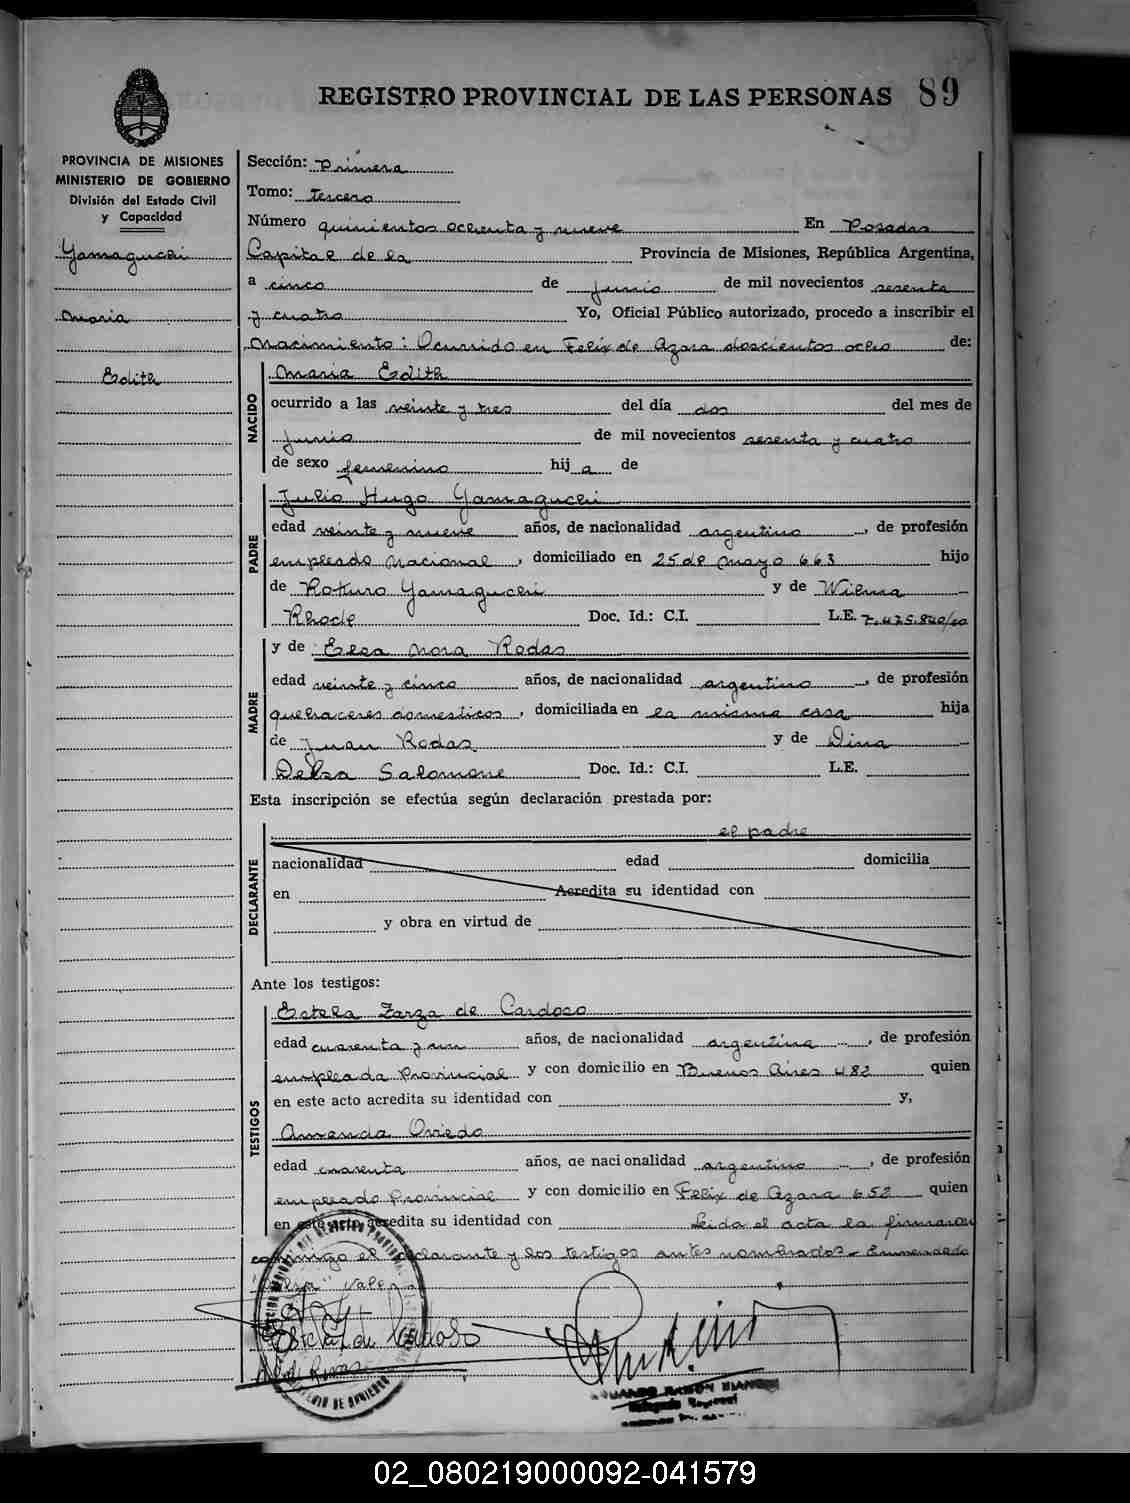 REGISTRO PROVINCIAL DE LAS PERSONAS 89
PROVINCIA DE MISIONES
MINISTERIO DE GOBIERNO
División del Estado Civil
y Capacidad
Yamaguchi
Maria
Edith
Sección: Primera
Tomo: Tercero
Número quinientos ochenta y nueve En Posadas
Capital de la Provincia de Misiones, República Argentina,
a cinco de junio de mil novecientos sesenta
y cuatro Yo, Oficial Público autorizado, procedo a inscribir el
Nacimiento: Ocurrido en Felix de Azara doscientos ocho de:
NACIDO
Maria Edith
ocurrido a las veinte y tres del día dos del mes de
junio de mil novecientos sesenta y cuatro
de sexo femenino hij a de
PADRE
Julio Hugo Yamaguchi
edad veinte y nueve años, de nacionalidad argentino, de profesión
empleado Nacional, domiciliado en 25 de Mayo 663 hijo
de Rokuro Yamaguchi y de Wilma
Rhode Doc. Id.: C.I. L.E. 7.475.840/60
MADRE
y de Elsa Nora Rodas
edad veinte y cinco años, de nacionalidad argentino, de profesión
quehaceres domesticos, domiciliada en la misma casa hija
de Juan Rodas y de Dina
Delza Salomone Doc. Id.: C.I. L.E.
Esta inscripción se efectúa según declaración prestada por:
DECLARANTE
el padre
nacionalidad edad domicilia
en Acredita su identidad con
y obra en virtud de
Ante los testigos:
TESTIGOS
Estela Zarza de Cardoso
edad cuarenta y un años, de nacionalidad argentina, de profesión
empleada Provincial y con domicilio en Buenos Aires 482 quien
en este acto acredita su identidad con y,
Amenda Oviedo
edad cuarenta años, de nacionalidad argentino, de profesión
empleado Provincial y con domicilio en Felix de Azara 652 quien
en este acto acredita su identidad con Leida el acta la firmaron
conmigo el declarante y los testigos antes nombrados - Enmendado
Vale
Estela Z de Cardoso
02_080219000092-041579